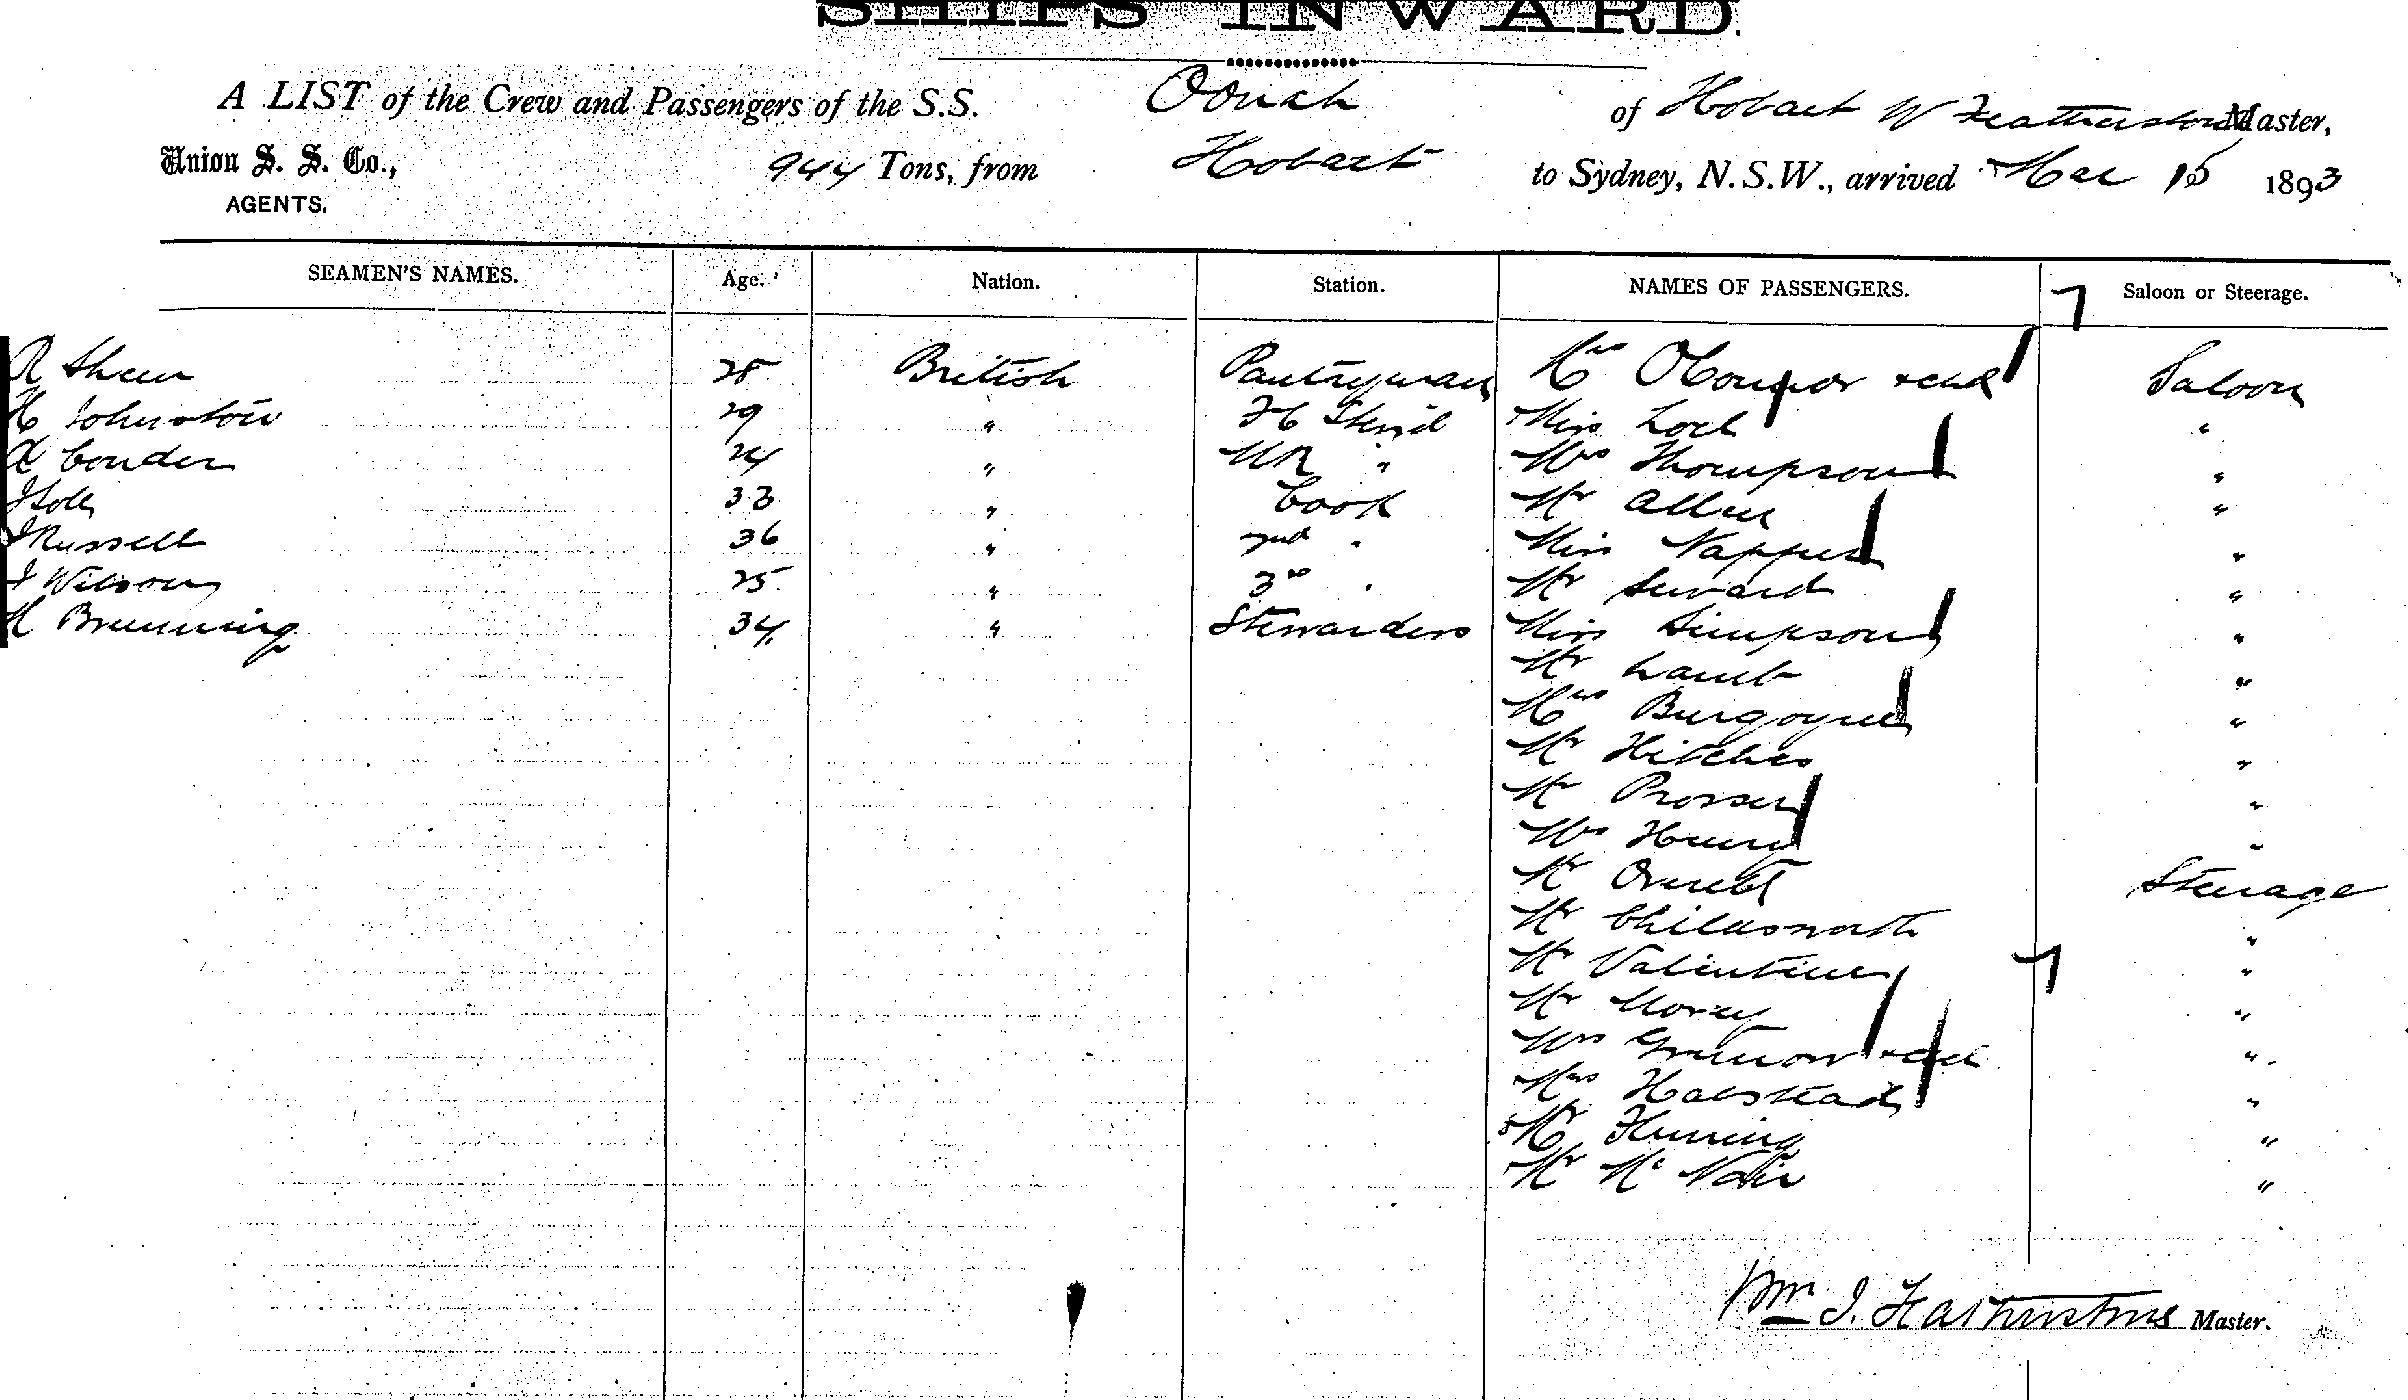 SHIPS INWARD.
A LIST of the Crew and Passengers of the S.S. Oonah of Hobart W Featherstone Master,
Union S. S. Co., AGENTS. 944 Tons, from Hobart to Sydney, N.S.W., arrived Mar 15 1893
SEAMEN'S NAMES. Age. Nation. Station. NAMES OF PASSENGERS. Saloon or Steerage.
R Sheen 28 British Pantryman Mrs OConnor Saloon
H Johnston 29 " Stwd Miss Lock "
Conder 24 " " Mrs Thompson "
33 " Cook Mr Allen "
J Russell 36 " 2nd " Miss "
J Wilson 25 " 3rd " Mr Seward "
Brunning 34 " Stewardess Miss Simpson "
Mr Lamb "
Mrs Burgoyne "
Mr "
Mr Prosser "
Mrs Henry "
Mr Steerage
Mr "
Mr Valentine "
Mr Morey "
Mrs "
Mrs Halstead "
Mr "
Mr Mc Nair "
Wm J. Featherstone Master.